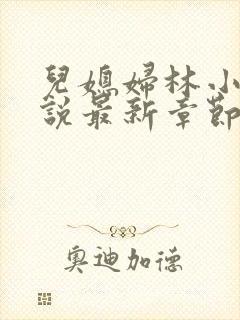 兒媳婦林小
說最新章節
奧迪加德